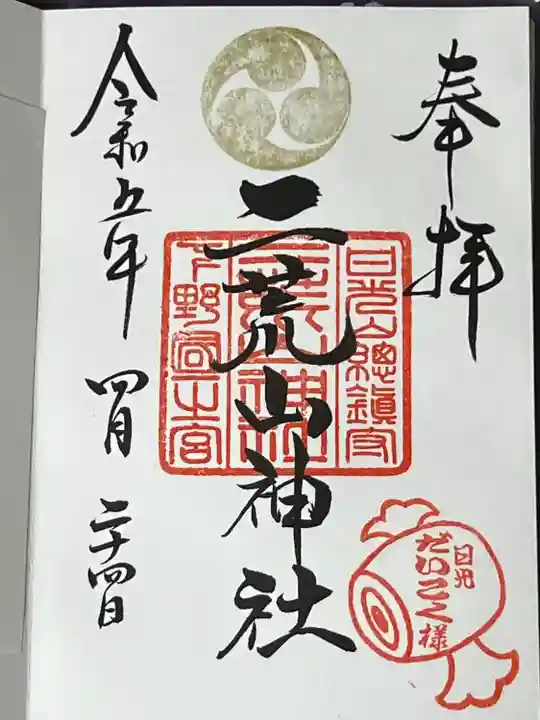 奉拝
日光山總鎮守
二荒山神社
二荒山神社
下野國一之宮
令和五年
四月
二十四日
日光
だいこく様